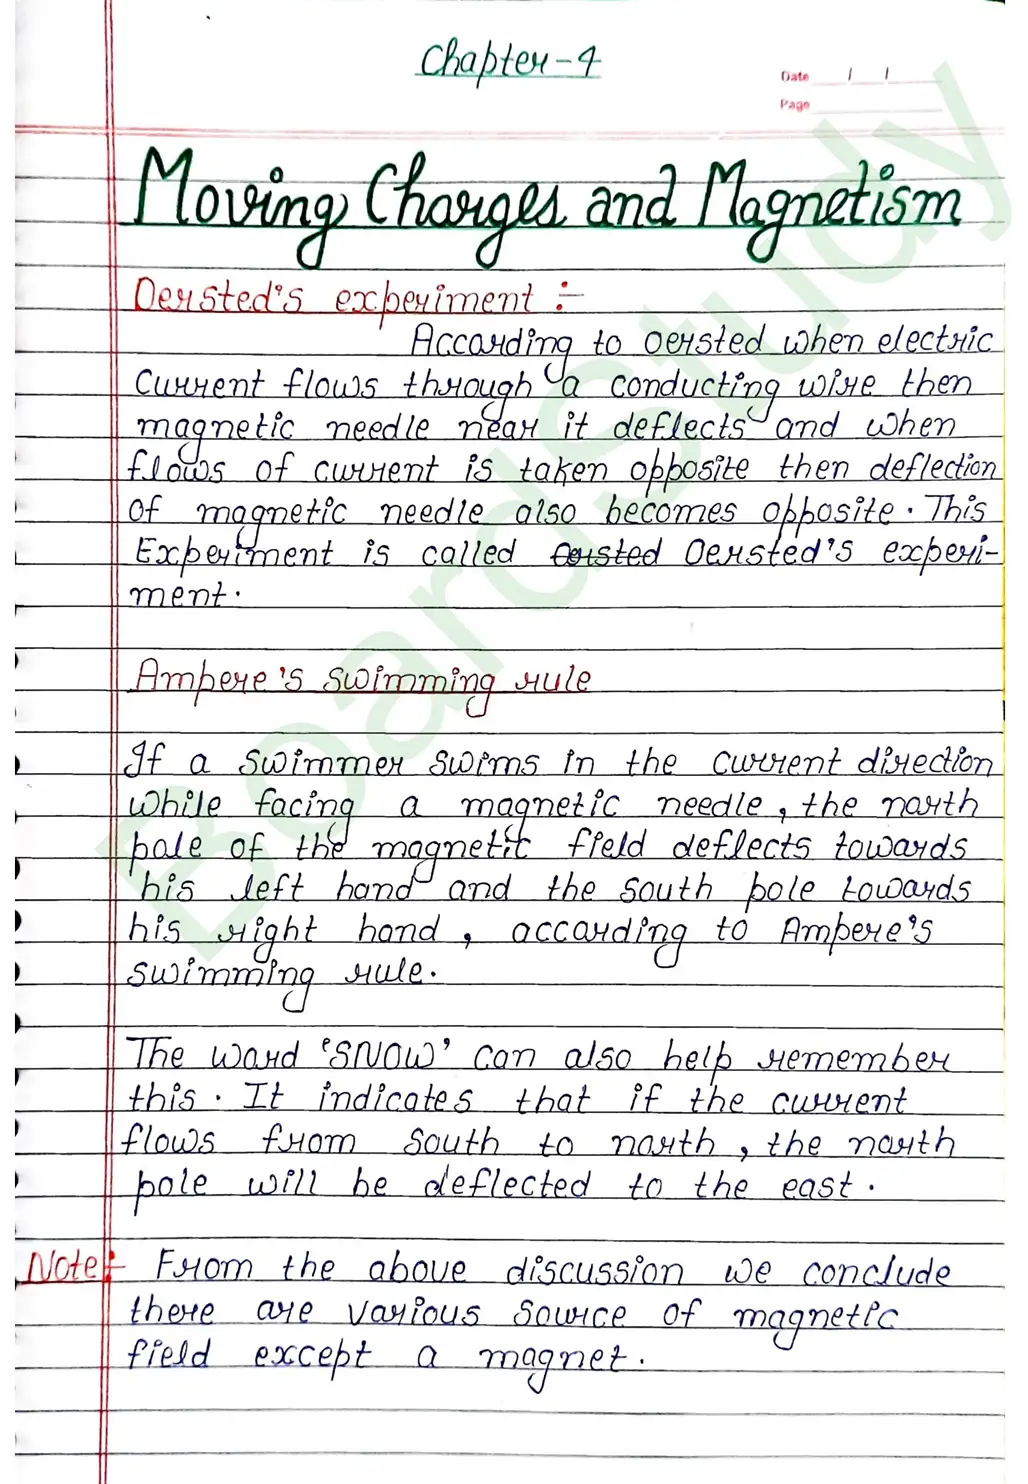 Chapter-4
Date / /
Page
Moving Charges and Magnetism
Oersted's experiment :-
According to oersted when electric
current flows through a conducting wire then
magnetic needle near it deflects and when
flows of current is taken opposite then deflection
of magnetic needle also becomes opposite. This
Experiment is called oersted Oersted's experi-
ment.
Ampere's swimming rule
If a swimmer swims in the current direction
while facing a magnetic needle, the north
pole of the magnetic field deflects towards
his left hand and the south pole towards
his right hand, according to Ampere's
swimming rule.
The word 'SNOW' can also help remember
this. It indicates that if the current
flows from south to north, the north
pole will be deflected to the east.
Note:- From the above discussion we conclude
there are various source of magnetic
field except a magnet.
BoardStudy